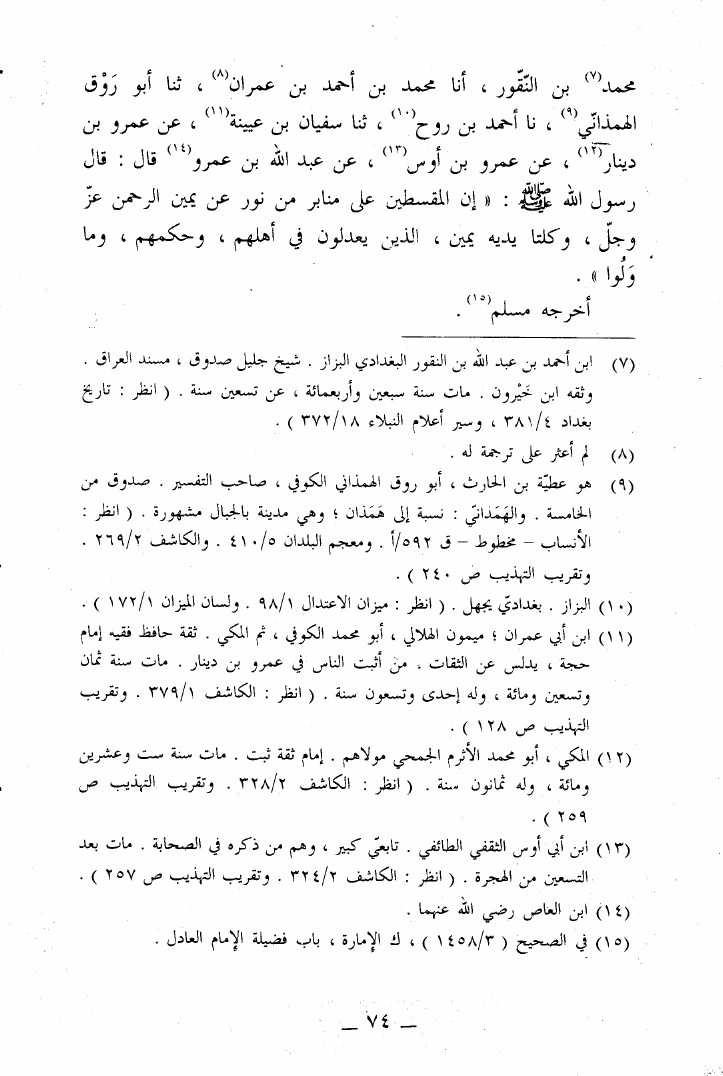 محمد(٧) بن النّقّور ، أنا محمد بن أحمد بن عمران(٨) ، ثنا أبو رَوْق
الهمذانّي(٩) ، نا أحمد بن روح(١٠) ، ثنا سفيان بن عيينة(١١) ، عن عمرو بن
دينار(١٢) ، عن عمرو بن أوس(١٣) ، عن عبد الله بن عمرو(١٤) قال : قال
رسول الله ﷺ : « إن المقسطين على منابر من نور عن يمين الرحمن عزّ
وجلّ ، وكلتا يديه يمين ، الذين يعدلون في أهلهم ، وحكمهم ، وما
وَلُوا » .
أخرجه مسلم(١٥) .
(٧) ابن أحمد بن عبد الله بن النقور البغدادي البزاز . شيخ جليل صدوق ، مسند العراق .
وثقه ابن خَيْرون . مات سنة سبعين وأربعمائة ، عن تسعين سنة . ( انظر : تاريخ
بغداد ٣٨١/٤ ، وسير أعلام النبلاء ٣٧٢/١٨ ) .
(٨) لم أعثر على ترجمة له .
(٩) هو عطيّة بن الحارث ، أبو روق الهمذاني الكوفي ، صاحب التفسير . صدوق من
الخامسة . والهَمَدانّي : نسبة إلى هَمَذان ؛ وهي مدينة بالجبال مشهورة . ( انظر :
الأنساب – مخطوط – ق ٥٩٢/أ . ومعجم البلدان ٤١٠/٥ . والكاشف ٢٦٩/٢ .
وتقريب التهذيب ص ٢٤٠ ) .
(١٠) البزاز . بغداديّ يجهل . ( انظر : ميزان الاعتدال ٩٨/١ . ولسان الميزان ١٧٢/١ ) .
(١١) ابن أبي عمران ؛ ميمون الهلالي ، أبو محمد الكوفي ، ثم المكي . ثقة حافظ فقيه إمام
حجة ، يدلس عن الثقات . من أثبت الناس في عمرو بن دينار . مات سنة ثمان
وتسعين ومائة ، وله إحدى وتسعون سنة . ( انظر : الكاشف ٣٧٩/١ . وتقريب
التهذيب ص ١٢٨ ) .
(١٢) المكي ، أبو محمد الأثرم الجمحي مولاهم . إمام ثقة ثبت . مات سنة ست وعشرين
ومائة ، وله ثمانون سنة . ( انظر : الكاشف ٣٢٨/٢ . وتقريب التهذيب ص
٢٥٩ ) .
(١٣) ابن أبي أوس الثقفي الطائفي . تابعيّ كبير ، وهم من ذكره في الصحابة . مات بعد
التسعين من الهجرة . ( انظر : الكاشف ٣٢٤/٢ . وتقريب التهذيب ص ٢٥٧ ) .
(١٤) ابن العاص رضي الله عنهما .
(١٥) في الصحيح ( ١٤٥٨/٣ ) ، ك الإمارة ، باب فضيلة الإمام العادل .
– ٧٤ –